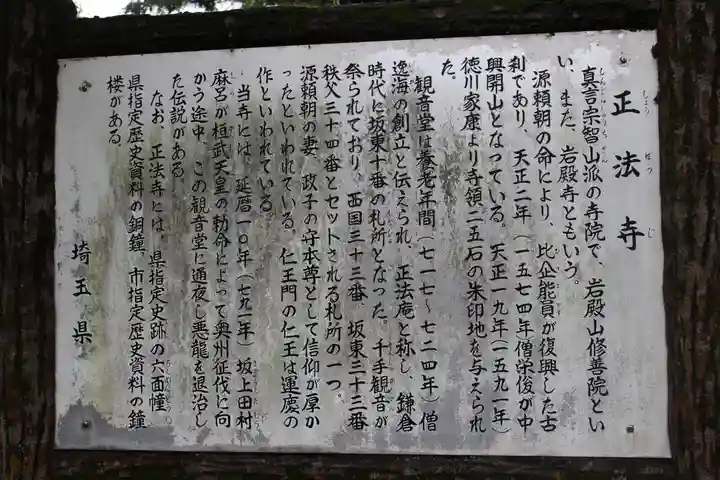 正法寺
しょうぼうじ
真言宗智山派の寺院で、岩殿山修善院とい
い、また、岩殿寺ともいう。
源頼朝の命により、比企能員が復興した古
刹であり、天正二年（一五七四年僧栄俊が中
興開山となっている。天正一九年（一五九一年）
徳川家康より寺領二五石の朱印地を与えられ
た。
観音堂は養老年間（七一七～七二四年）僧
逸海の創立と伝えられ、正法庵と称し、鎌倉
時代に坂東十番の札所となった。千手観音が
祭られており、西国三十三番、坂東三十三番
秩父三十四番とセットされる札所の一つ。
源頼朝の妻、政子の守本尊として信仰が厚か
ったといわれている。仁王門の仁王は運慶の
作といわれている。
当寺には、延暦一〇年（七九一年）坂上田村
麻呂が桓武天皇の勅命によって奥州征伐に向
かう途中、この観音堂に通夜し悪龍を退治し
た伝説がある。
なお、正法寺には、県指定史跡の六面幢
県指定歴史資料の銅鐘、市指定歴史資料の鐘
楼がある。
埼玉県